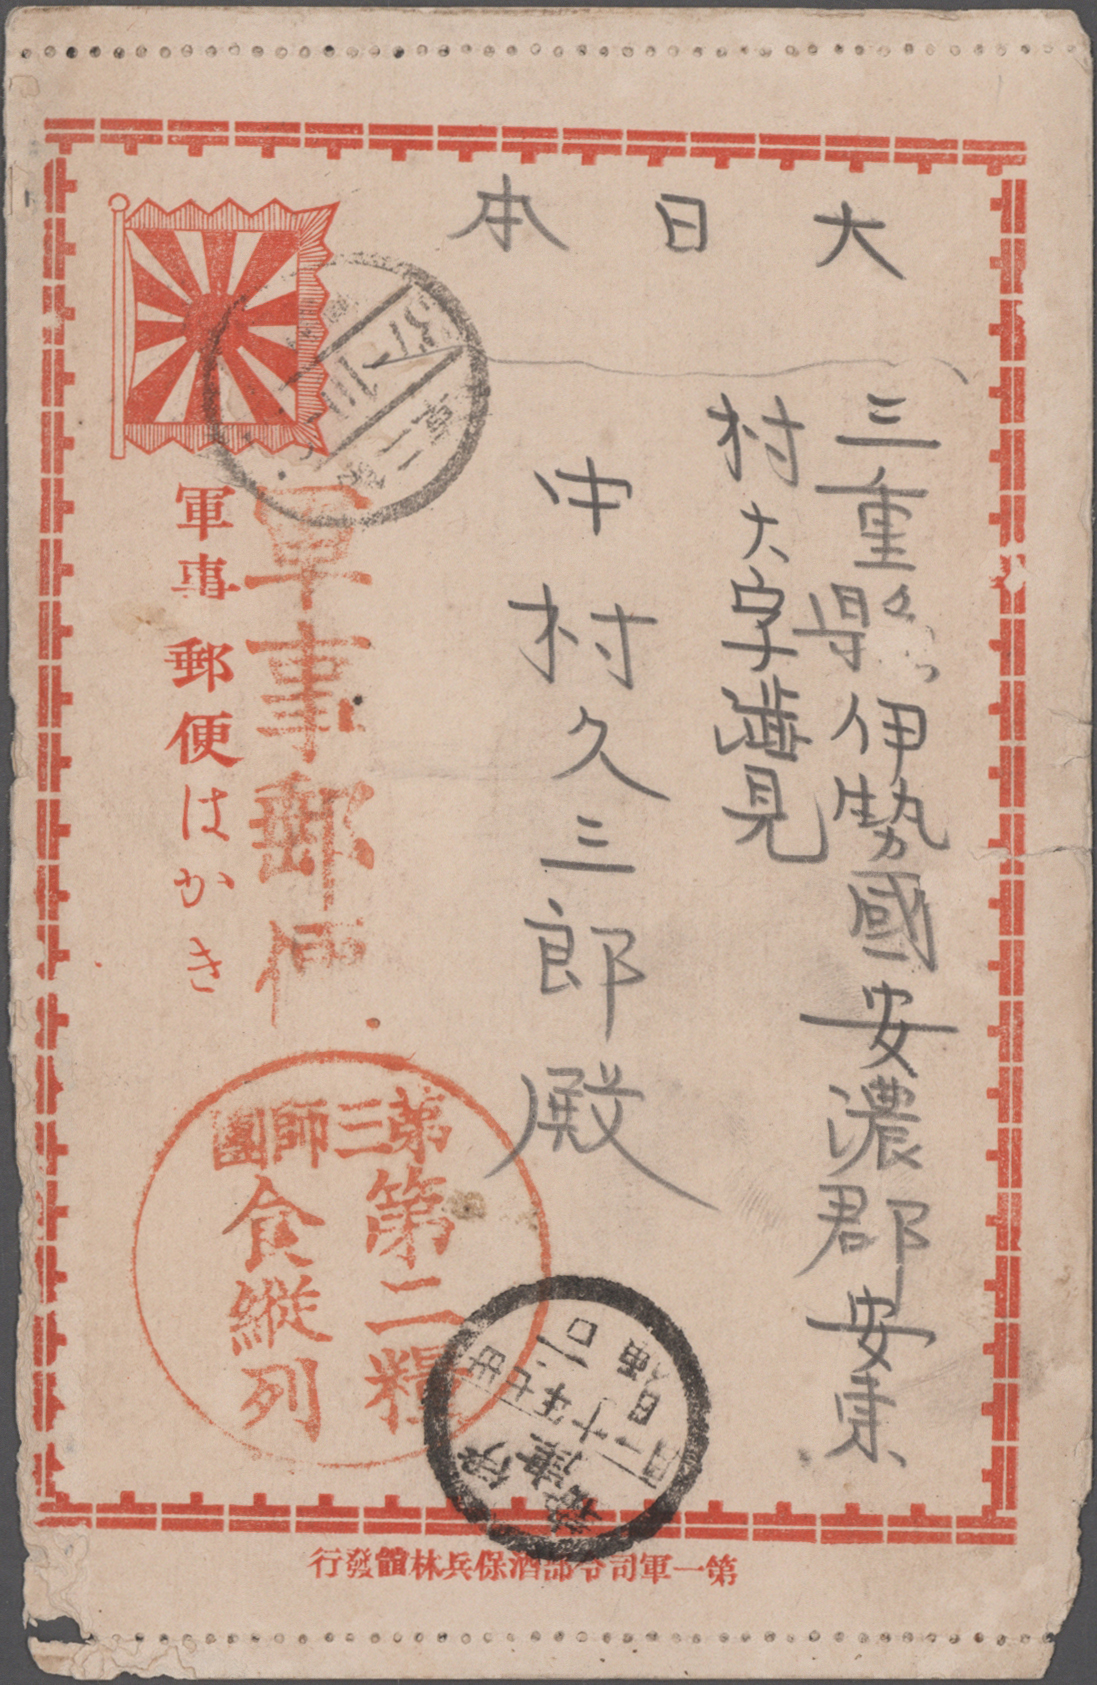 大日本
三重県伊勢國安濃郡安東
村大字
見
中村久三郎殿
軍事郵便
軍事郵便はかき
第三師團
第二糧
食縦列
伊勢
津
卅七年
十一月
日
第一軍司令部酒保兵林館發行